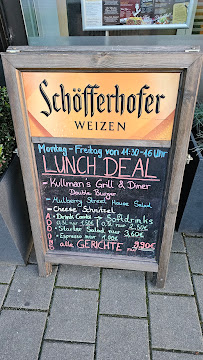 Schöfferhofer
WEIZEN
Montag - Freitag von 11:30-16 Uhr
LUNCH DEAL
- Kullman's Grill & Diner
Double Burger
- Mulberry Street House Salad
- Cheese Schnitzel
ADD ON
• Drink Combo → Softdrinks
• Starter Salad nur 3,60€
• Espresso nur 1,90€
alle GERICHTE 9,90€